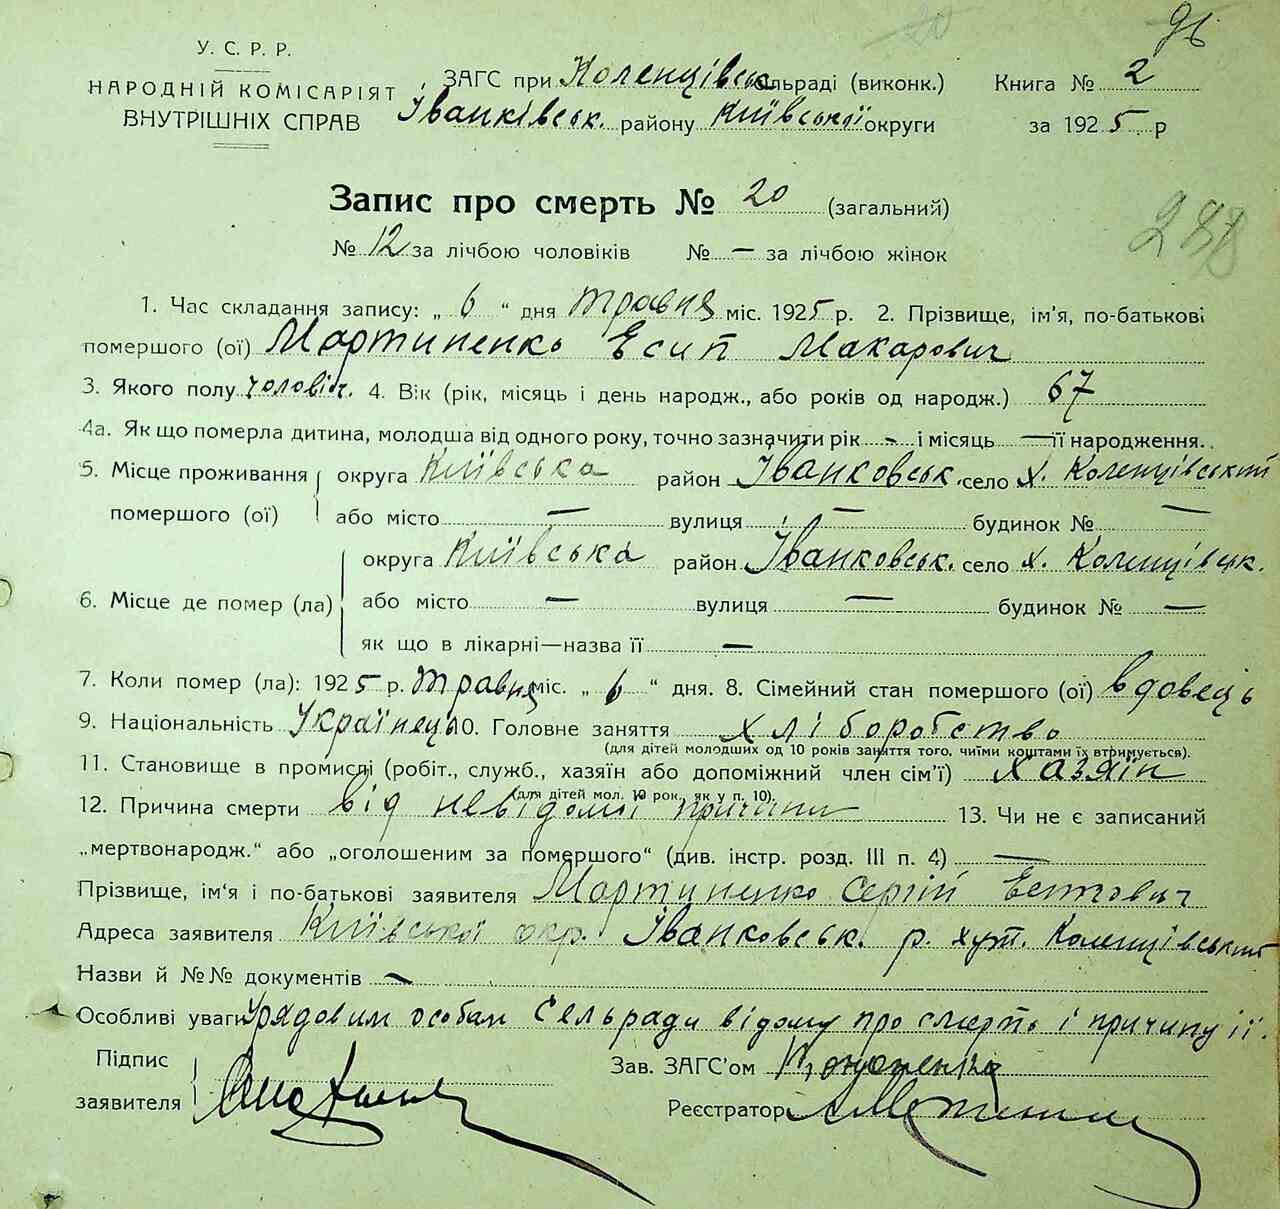 96
У. С. Р. Р.
НАРОДНІЙ КОМІСАРІЯТ
ВНУТРІШНІХ СПРАВ
ЗАГС при Коленцівськ. сільраді (виконк.)
Іванківськ. району Київської округи
Книга № 2
за 1925 р
Запис про смерть № 20 (загальний)
288
№ 12 за лічбою чоловіків № — за лічбою жінок
1. Час складання запису: „ 6 “ дня травня міс. 1925 р. 2. Прізвище, ім'я, по-батькові
помершого (ої) Мартиненко Есип Макарович
3. Якого полу чоловіч. 4. Вік (рік, місяць і день народж., або років од народж.) 67
4а. Як що померла дитина, молодша від одного року, точно зазначити рік - і місяць — її народження.
5. Місце проживання помершого (ої) округа Київська район Іванковськ. село х. Коленцівський
або місто — вулиця — будинок № —
6. Місце де помер (ла) округа Київська район Іванковськ. село х. Коленцівськ.
або місто — вулиця — будинок № —
як що в лікарні—назва її —
7. Коли помер (ла): 1925 р. травня міс. „ 6 “ дня. 8. Сімейний стан помершого (ої) вдовець
9. Національність Українець 10. Головне заняття хліборобство
(для дітей молодших од 10 років заняття того, чиїми коштами їх втримується).
11. Становище в промислі (робіт., служб., хазяїн або допоміжний член сім'ї) хазяїн
(для дітей мол. 10 рок. як у п. 10).
12. Причина смерти від невідомої причини 13. Чи не є записаний
„мертвонародж.“ або „оголошеним за помершого“ (див. інстр. розд. III п. 4) —
Прізвище, ім'я і по-батькові заявителя Мартиненко Сергій Естович
Адреса заявителя Київської окр. Іванковськ. р. хут. Коленцівський
Назви й №№ документів -
Особливі уваги Урядовим особам Сельради відому про смерть і причину її.
Підпис
заявителя
Зав. ЗАГС'ом
Реєстратор